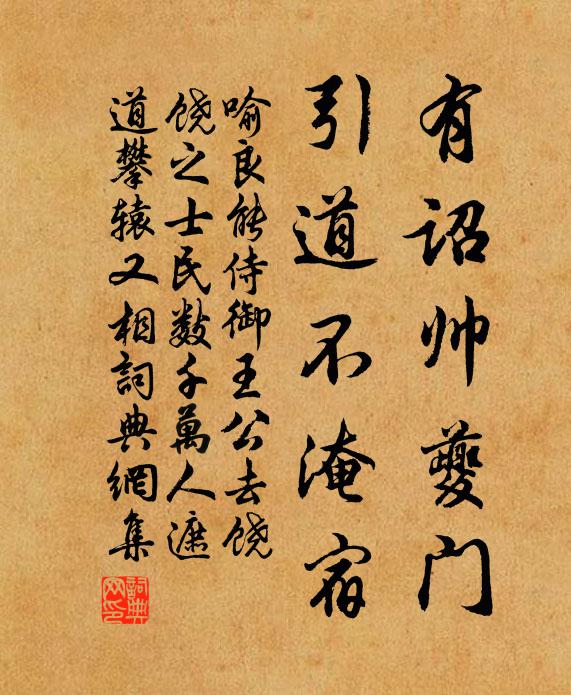 有诏帅夔门
引道不淹宿
喻良能侍御王公去饶
饶之士民数千萬人遮
道攀辕又相詞典網集
詞典
网印